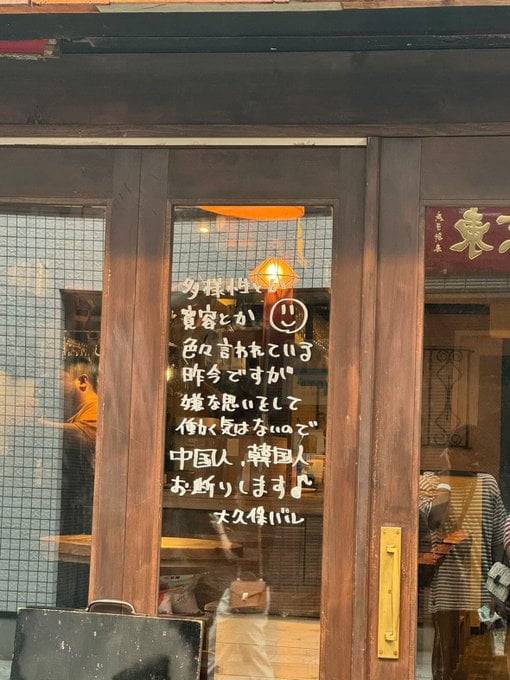 多様性とか
寛容とか
色々言われている
昨今ですが
嫌な思いをして
働く気はないので
中国人、韓国人
お断りします♪
大久保バル